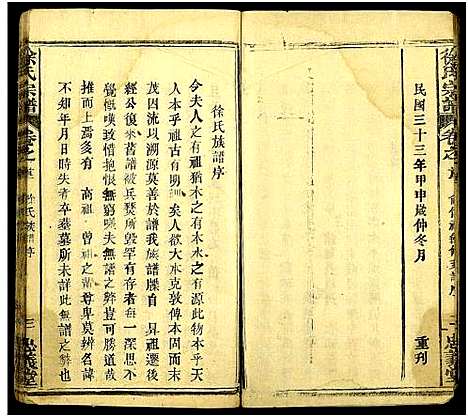 徐氏宗譜
卷之首
忠義堂
民國三十三年甲申歲仲冬月
重刊
徐氏族譜序
今夫人之有祖猶木之有本水之有源此物本乎天
人本乎祖古有明訓矣人欲大本克敦俾本固枝
茂因流以溯源莫善於譜我族譜牒自昇祖
經公復來茗譜被兵焚所毀罕有存者每一深思不
覺慨嘆致惜抱恨無窮嘆夫無譜之弊豈可勝道哉
推而上焉多有高祖曾祖之尊卑莫辨名諱
不知年月日時失考卒塟墓所未詳此無譜之弊也
徐氏宗譜
卷之首
徐氏族譜序
三
忠義堂